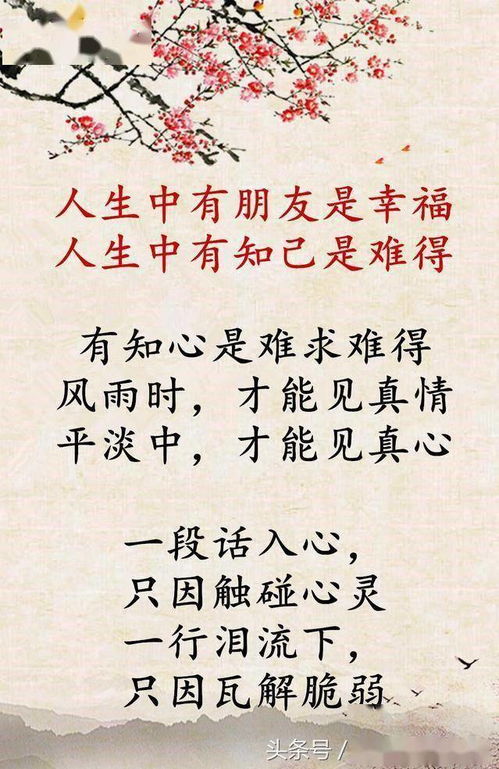 人生中有朋友是幸福
人生中有知己是难得
有知心是难求难得
风雨时，才能见真情
平淡中，才能见真心
一段话入心，
只因触碰心灵
一行泪流下，
只因瓦解脆弱
头条号 /